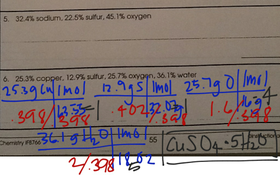 5. 32.4% sodium, 22.5% sulfur, 45.1% oxygen
6. 25.3% copper, 12.9% sulfur, 25.7% oxygen, 36.1% water
25.3g Cu | 1mol 12.9g S | 1mol 25.7g O | 1mol
.398/.398 | 63.55 .402/.398 | 32.07g 1.6/.398 | 16g 4
36.1g H2O | 1mol 55 CuSO4 • 5H2O
Chemistry IF8766
2/.398 | 18.02
5